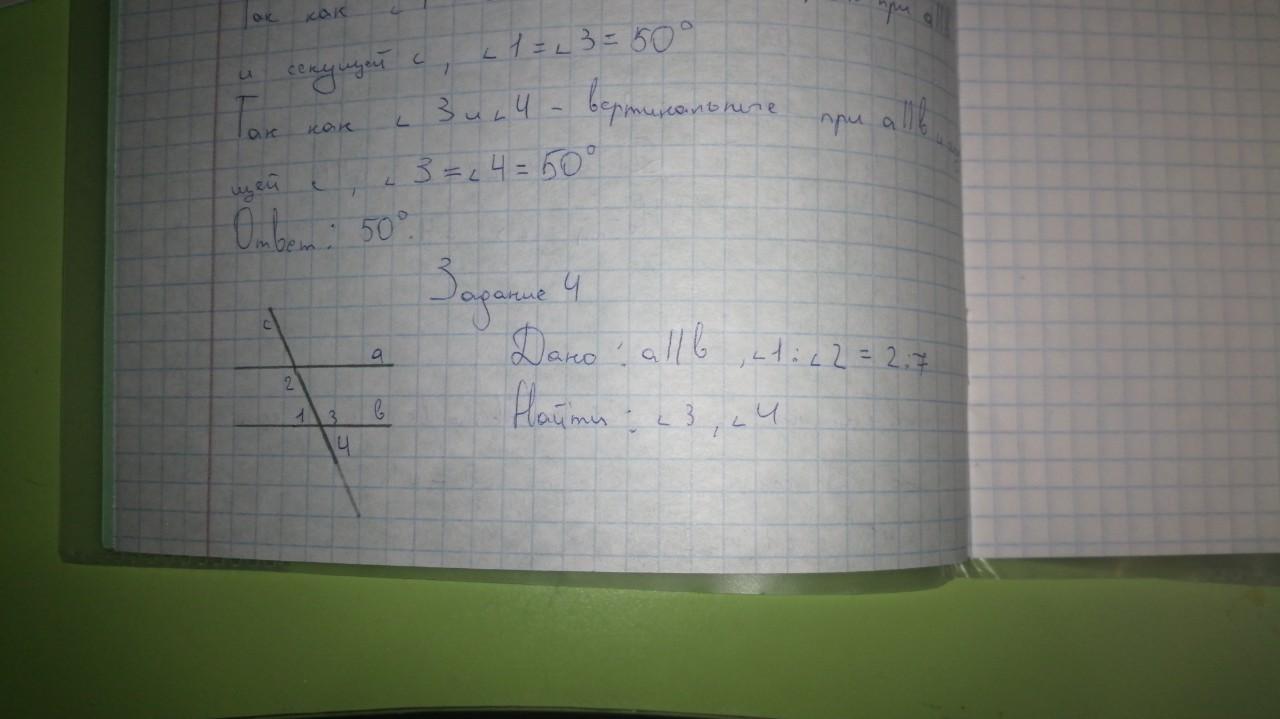 Так как ∠ при a||
и секущей c, ∠1=∠3=50°
Так как ∠3 и ∠4 - вертикальные при a||b и
щей c, ∠3=∠4=50°
Ответ: 50°.
Задание 4
c
a
2
1 3 b
4
Дано: a||b, ∠1:∠2=2:7
Найти: ∠3, ∠4